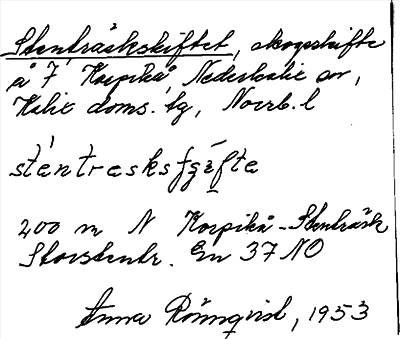 Stenträskskiftet, skogsskifte
å 7 Korpikå Nederkalix sn,
Kalix doms. tg, Norrb. l
sténtresksʃχífte
200 m N Korpikå-Stenträsk
Storstentr. En 37 NO
Anna Rönnqvist, 1953